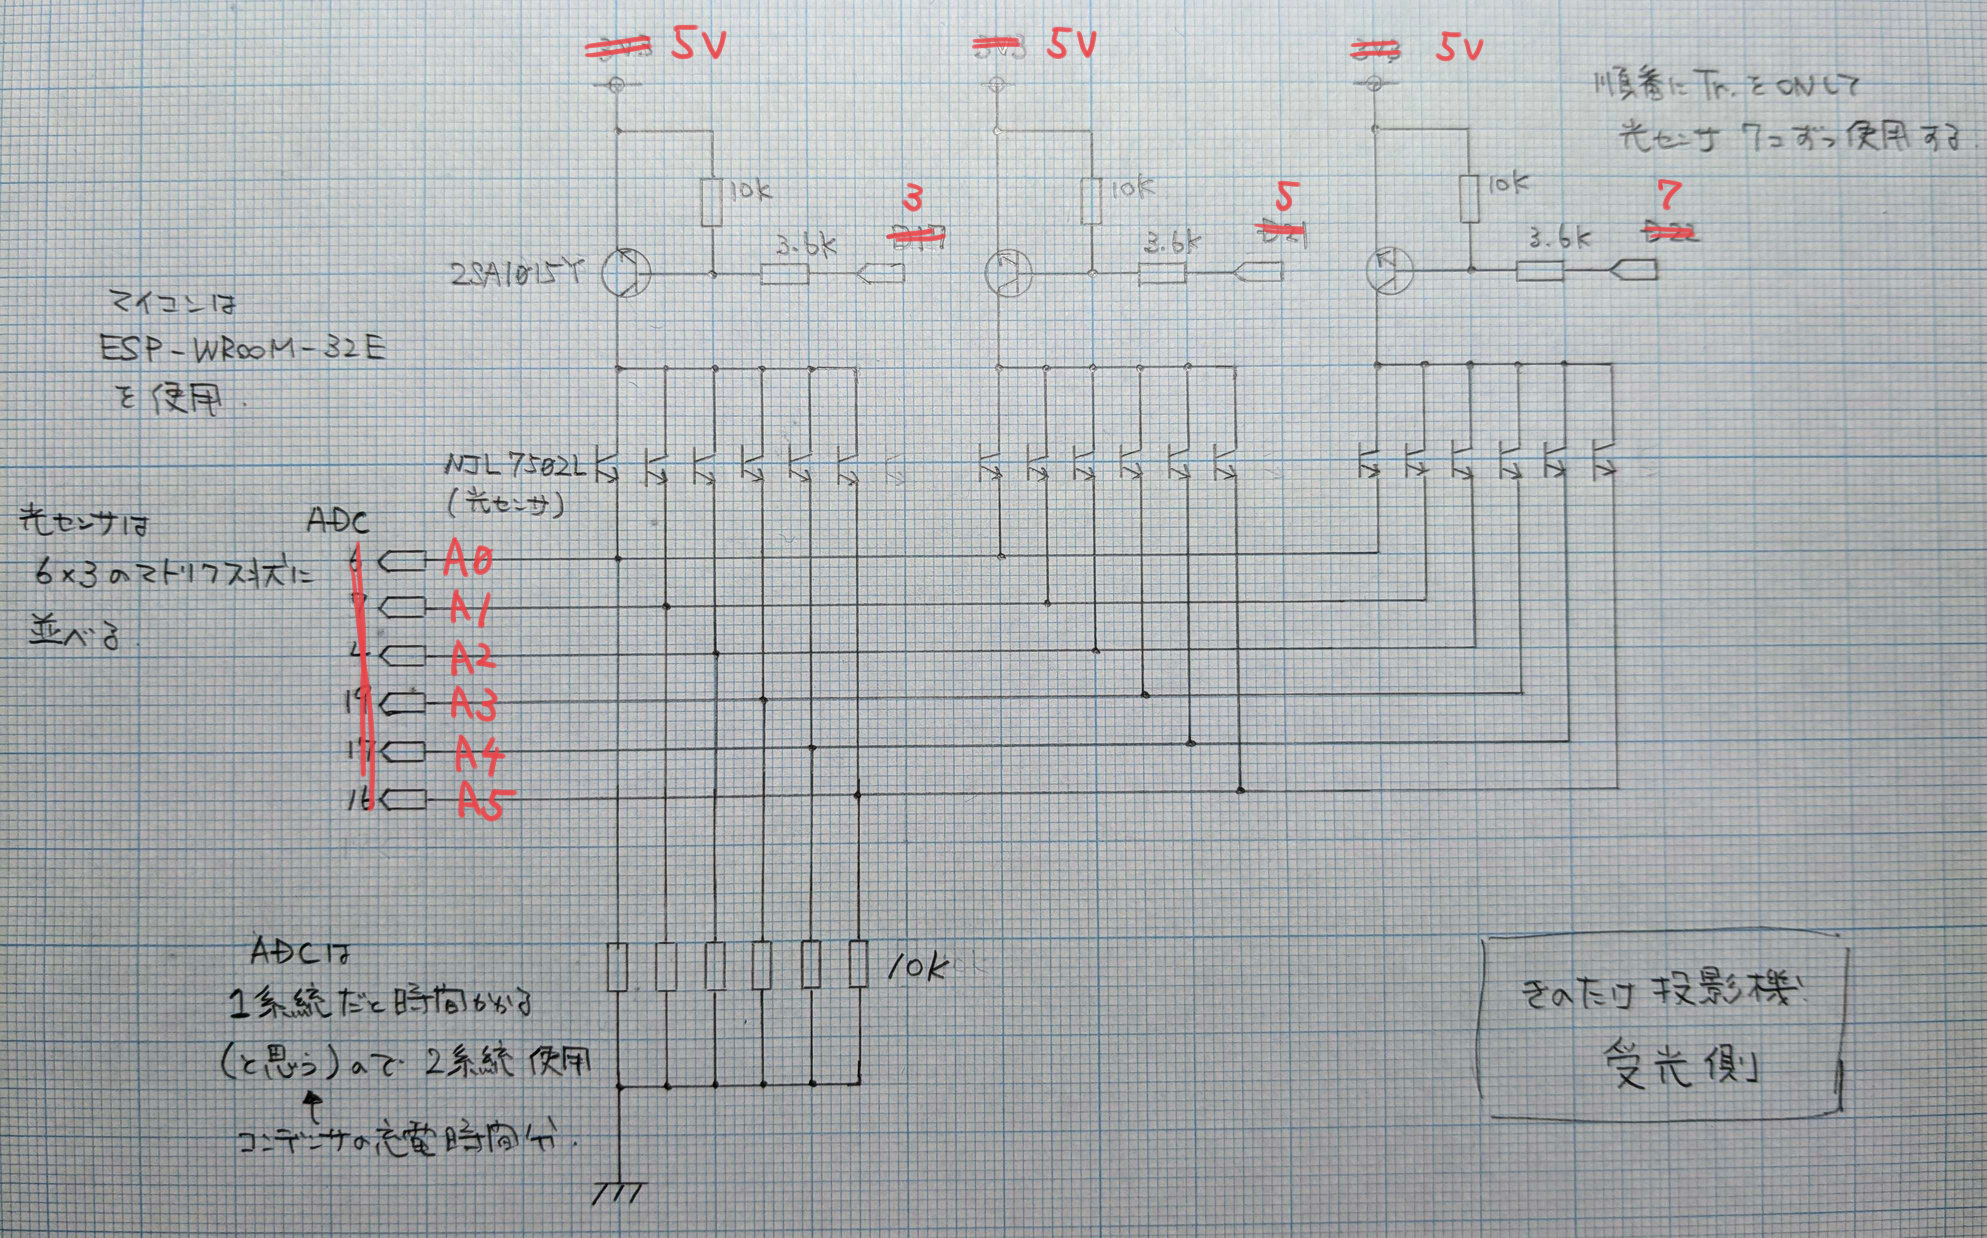 5V 5V 5V
順番にTr.をONして
光センサ 7コずつ使用する.
10K 10K 10K
3 5 7
3.6K 3.6K 3.6K
2SA1015Y
マイコンは
ESP-WROOM-32E
を使用.
NJL7502L
(光センサ)
光センサは
6×3のマトリクス状に
並べる.
ADC
A0
A1
A2
A3
A4
A5
19
17
16
10K
ADCは
1系統だと時間かかる
(と思う)ので 2系統使用
コンデンサの充電時間分.
きのたけ投影機
受光側